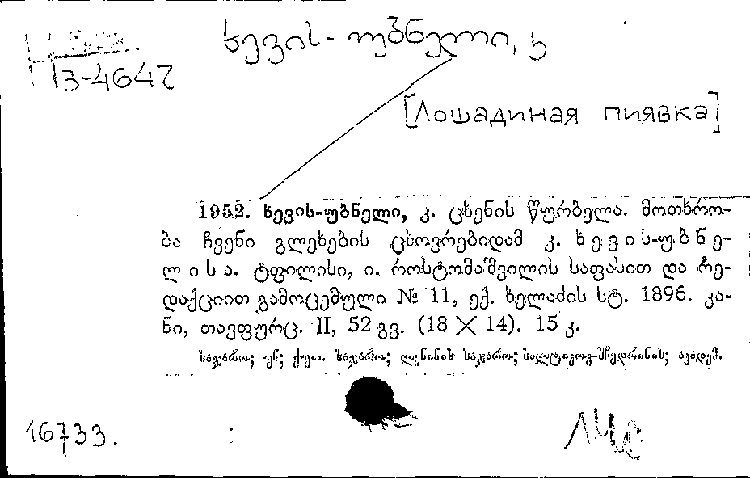 ხევის-უბნელი, კ
13-4647
[Лошадиная пиявка]
1952. ხევის-უბნელი, კ. ცხენის წურბელა. მოთხრო-
ბა ჩვენი გლეხების ცხოვრებიდამ კ. ხევის-უბნე-
ლისა. ტფილისი, ი. როსტომაშვილის საფასით და რე-
დაქციით გამოცემული № 11, ექ. ხელაძის სტ. 1896. კა-
ნი, თავფურც. II, 52 გვ. (18 X 14). 15 კ.
16733.